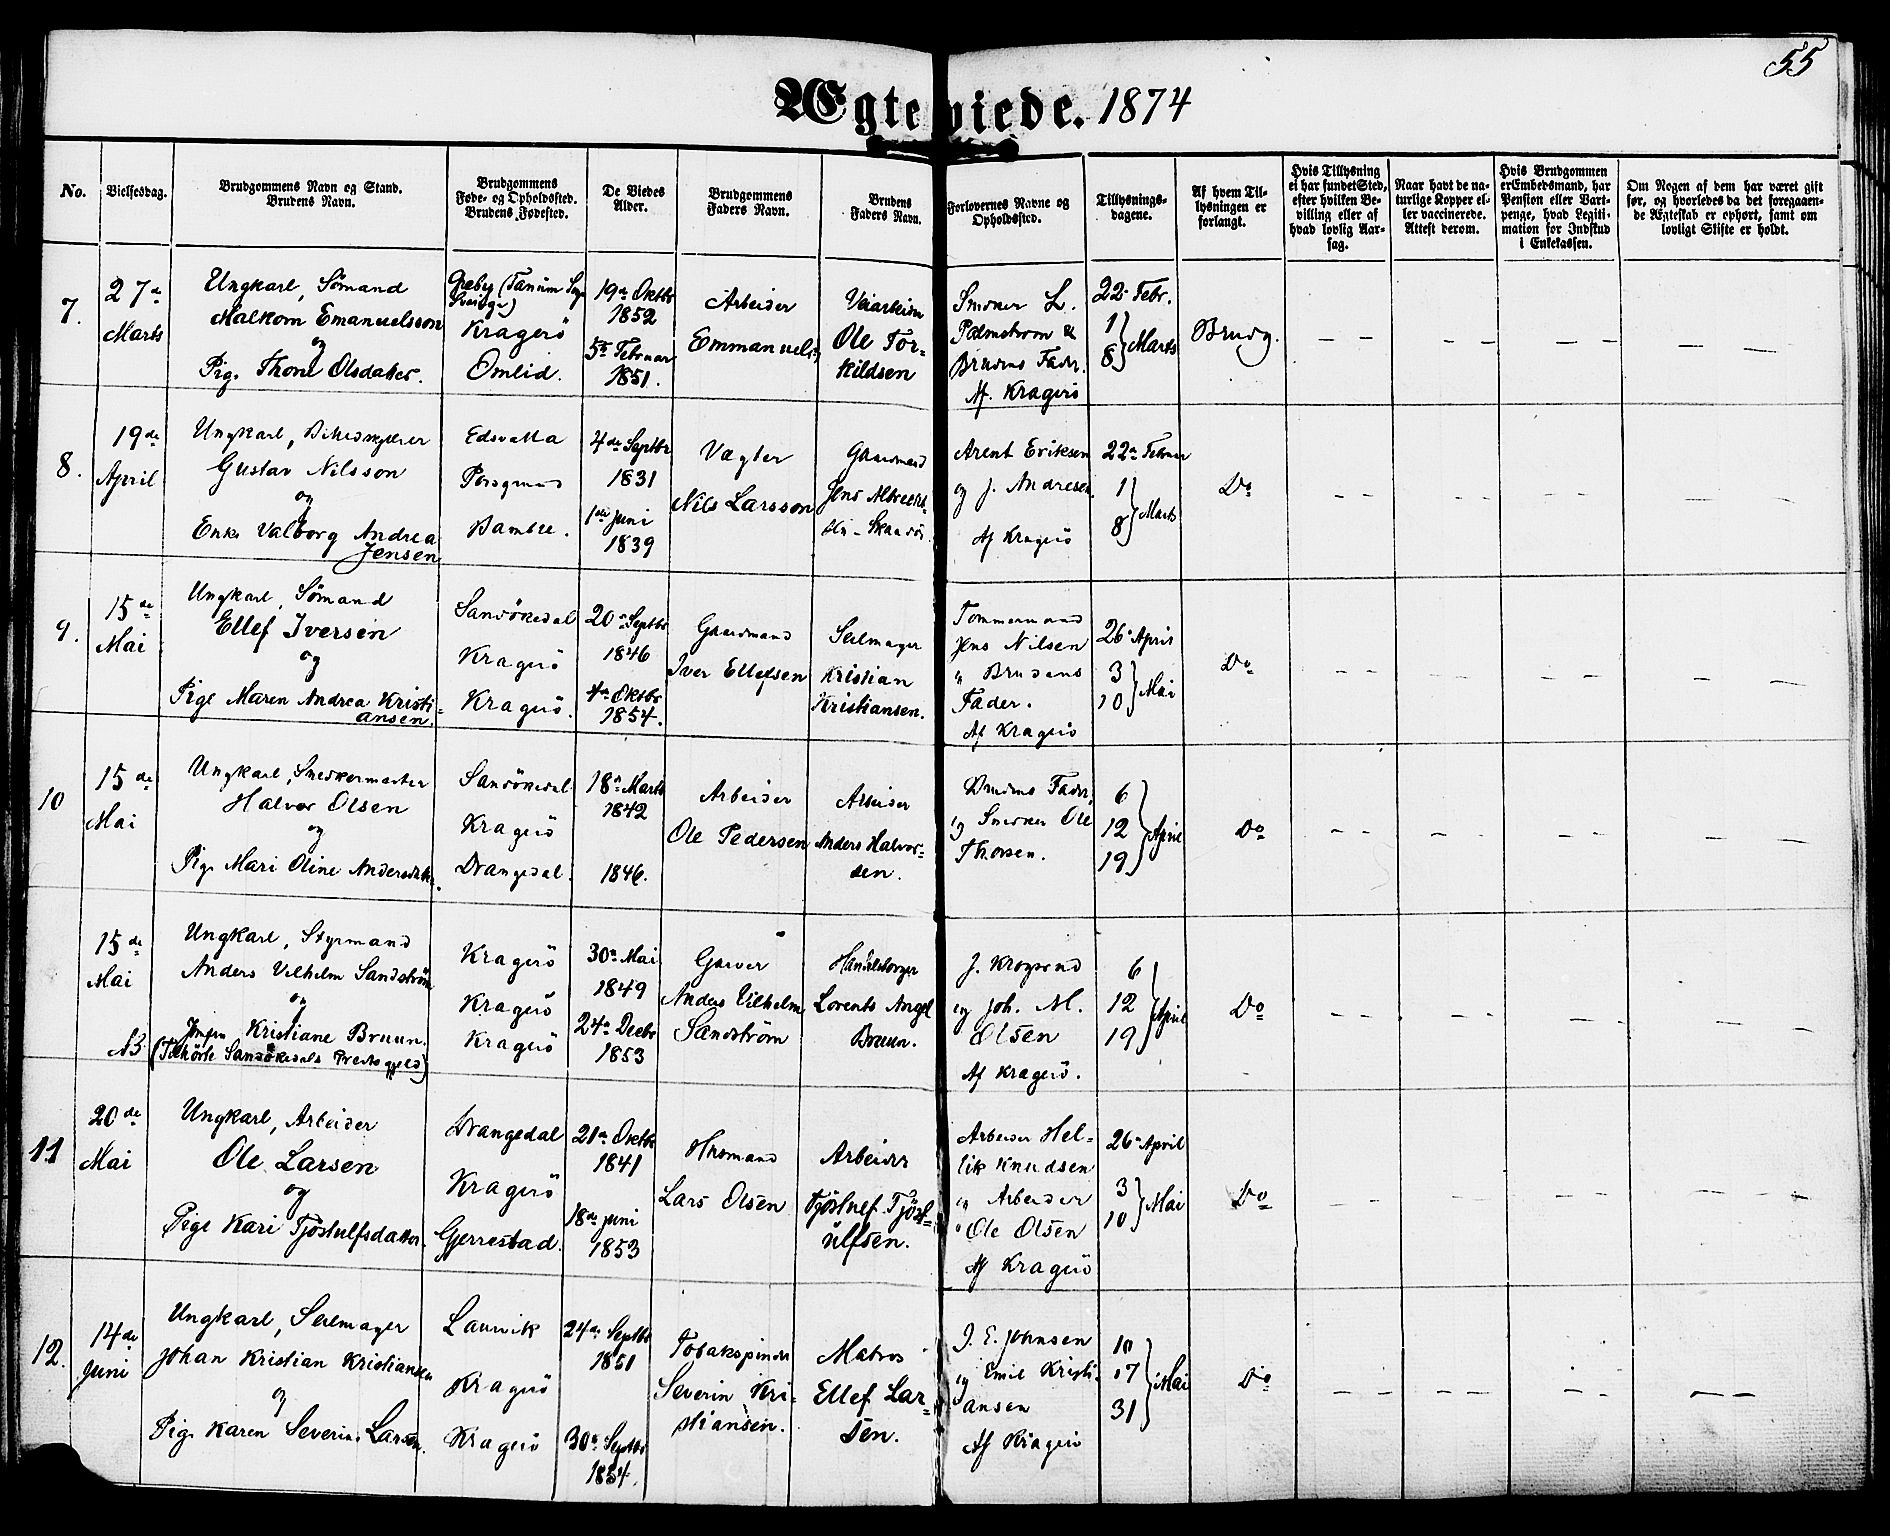 55
Ægteviede. 1874
No.
Vielsesdag.
Brudgommens Navn og Stand.
Brudens Navn.
Brudgommens
Føde- og Opholdssted.
Brudens Fødested.
De Viedes
Alder.
Brudgommens
Faders Navn.
Brudens
Faders Navn.
Forlovernes Navne og
Opholdssted.
Tillysnings-
dagene.
Af hvem Til-
lysningen er
forlangt.
Hvis Tillysning
ei har fundet Sted,
efter hvilken Be-
villing eller af
hvad lovlig Aar-
sag.
Naar havt de na-
turlige Kopper el-
ler vaccinerede.
Attest derom.
Hvis Brudgommen
er Embedsmand, har
Pension eller Vart-
penge, hvad Legiti-
mation for Indskud
i Enkekassen.
Om Nogen af dem har været gift
før, og hvorledes da det foregaaen-
de Ægteskab er ophørt, samt om
lovligt Skifte er holdt.
7.
27de
Marts
Ungkarl, Sømand
Malkom Emanuelsson
og
Pige Thone Olsdatter.
(Tanum
Sverige)
Kragerö
Omlid.
19de Oktbr
1852
5te Februar
1851.
Arbeider
Emmanuels
Veiarbeider
Ole Tor-
kildsen
Snedker L.
Palmstrom &
Brudens Fader.
Af Kragerö
22de Febr.
1
8 } Marts
Brudg.
8.
19de
April
Ungkarl,
Gustav Nilsson
og
Enke Valborg Andrea
Jensen
Edsvalla
Porsgrund
Bamble.
4de Septbr
1831
1ste Juni
1839
Vægter
Nils Larsson
Gaardmand
Jens Albrecht-
sen - Skaadö.
Arent Eriksen
og J. Andresen.
Af Kragerö
22de Februar
1
8 } Marts
Do
9.
15de
Mai
Ungkarl, Sømand
Ellef Iversen
og
Pige Maren Andrea Kristi-
ansen.
Sandökedal
Kragerö
Kragerö.
20de Septbr
1846
4de Oktbr
1854.
Gaardmand
Iver Ellefsen
Seilmager
Kristian
Kristiansen.
Tømmermand
Jens Nilsen
" Brudens
Fader.
Af Kragerö
26de April
3
10 } Mai
Do
10
15de
Mai
Ungkarl, Snedkermester
Halvor Olsen
og
Pige Mari Oline Andersdatter.
Sandökedal
Kragerö
Drangedal.
18de Marts
1842
1846.
Arbeider
Ole Pedersen
Arbeider
Anders Halvor-
sen.
Brudens Fader,
og Snedker Ole
Thorsen.
6
12
19 } April
Do
15de
Mai
NB
Ungkarl, Styrmand
Anders Vilhelm Sandström
og
Jomfru Kristiane Bruun.
(Tilhörte Sandökedals Prestegjeld)
Kragerö
Kragerö
Kragerö
30de Mai
1849
24de Decbr
1853
Garver
Anders Vilhelm
Sandström
Handelsborger
Lorents Angel
Bruun.
J. Krogsrud
og Joh. M.
Olsen
Af Kragerö.
6
12
19 } April
Do
11
20de
Mai
Ungkarl, Arbeider
Ole Larsen
og
Pige Kari Tjöstulfsdatter.
Drangedal
Kragerö
Gjerrestad.
21de Oktbr
1841
18de Juni
1853
Husmand
Lars Olsen
Arbeider
Tjöstulf Tjöst-
ulfsen.
Arbeider Hel-
lik Knudsen
" Arbeider
" Ole Olsen
Af Kragerö
26de April
3
10 } Mai
Do
12.
14de
Juni
Ungkarl, Seilmager
Johan Kristian Kristiansen
og
Pige Karen Severine Larsen.
Laurvik
Kragerö
Kragerö
24de Septbr
1851
30de Septbr
1854.
Tobakspinder
Severin Kri-
stiansen.
Matros
Ellef Lar-
sen.
J. E. Johnsen
og Emil Kristi-
ansen
Af Kragerö
10
17
31 } Mai
Do